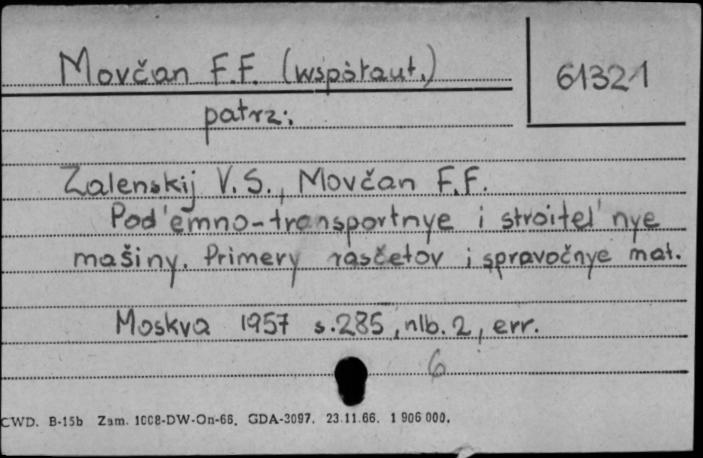 Movčan F.F. (współaut.)
61321
patrz:
Zalenskij V.S., Movčan F.F.
Pod'emno-transportnye i stroitel'nye
mašiny. Primery rasčetov i spravočnye mat.
Moskva 1957 s.285, nlb. 2, err.
6
CWD. B-15b Zam. 1008-DW-On-66. GDA-3097. 23.11.66. 1 906 000.